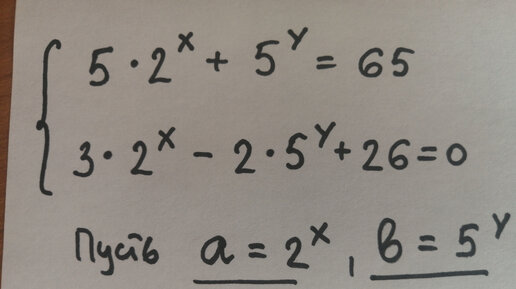 5 · 2^x + 5^y = 65
3 · 2^x - 2 · 5^y + 26 = 0
Пусть a = 2^x, b = 5^y